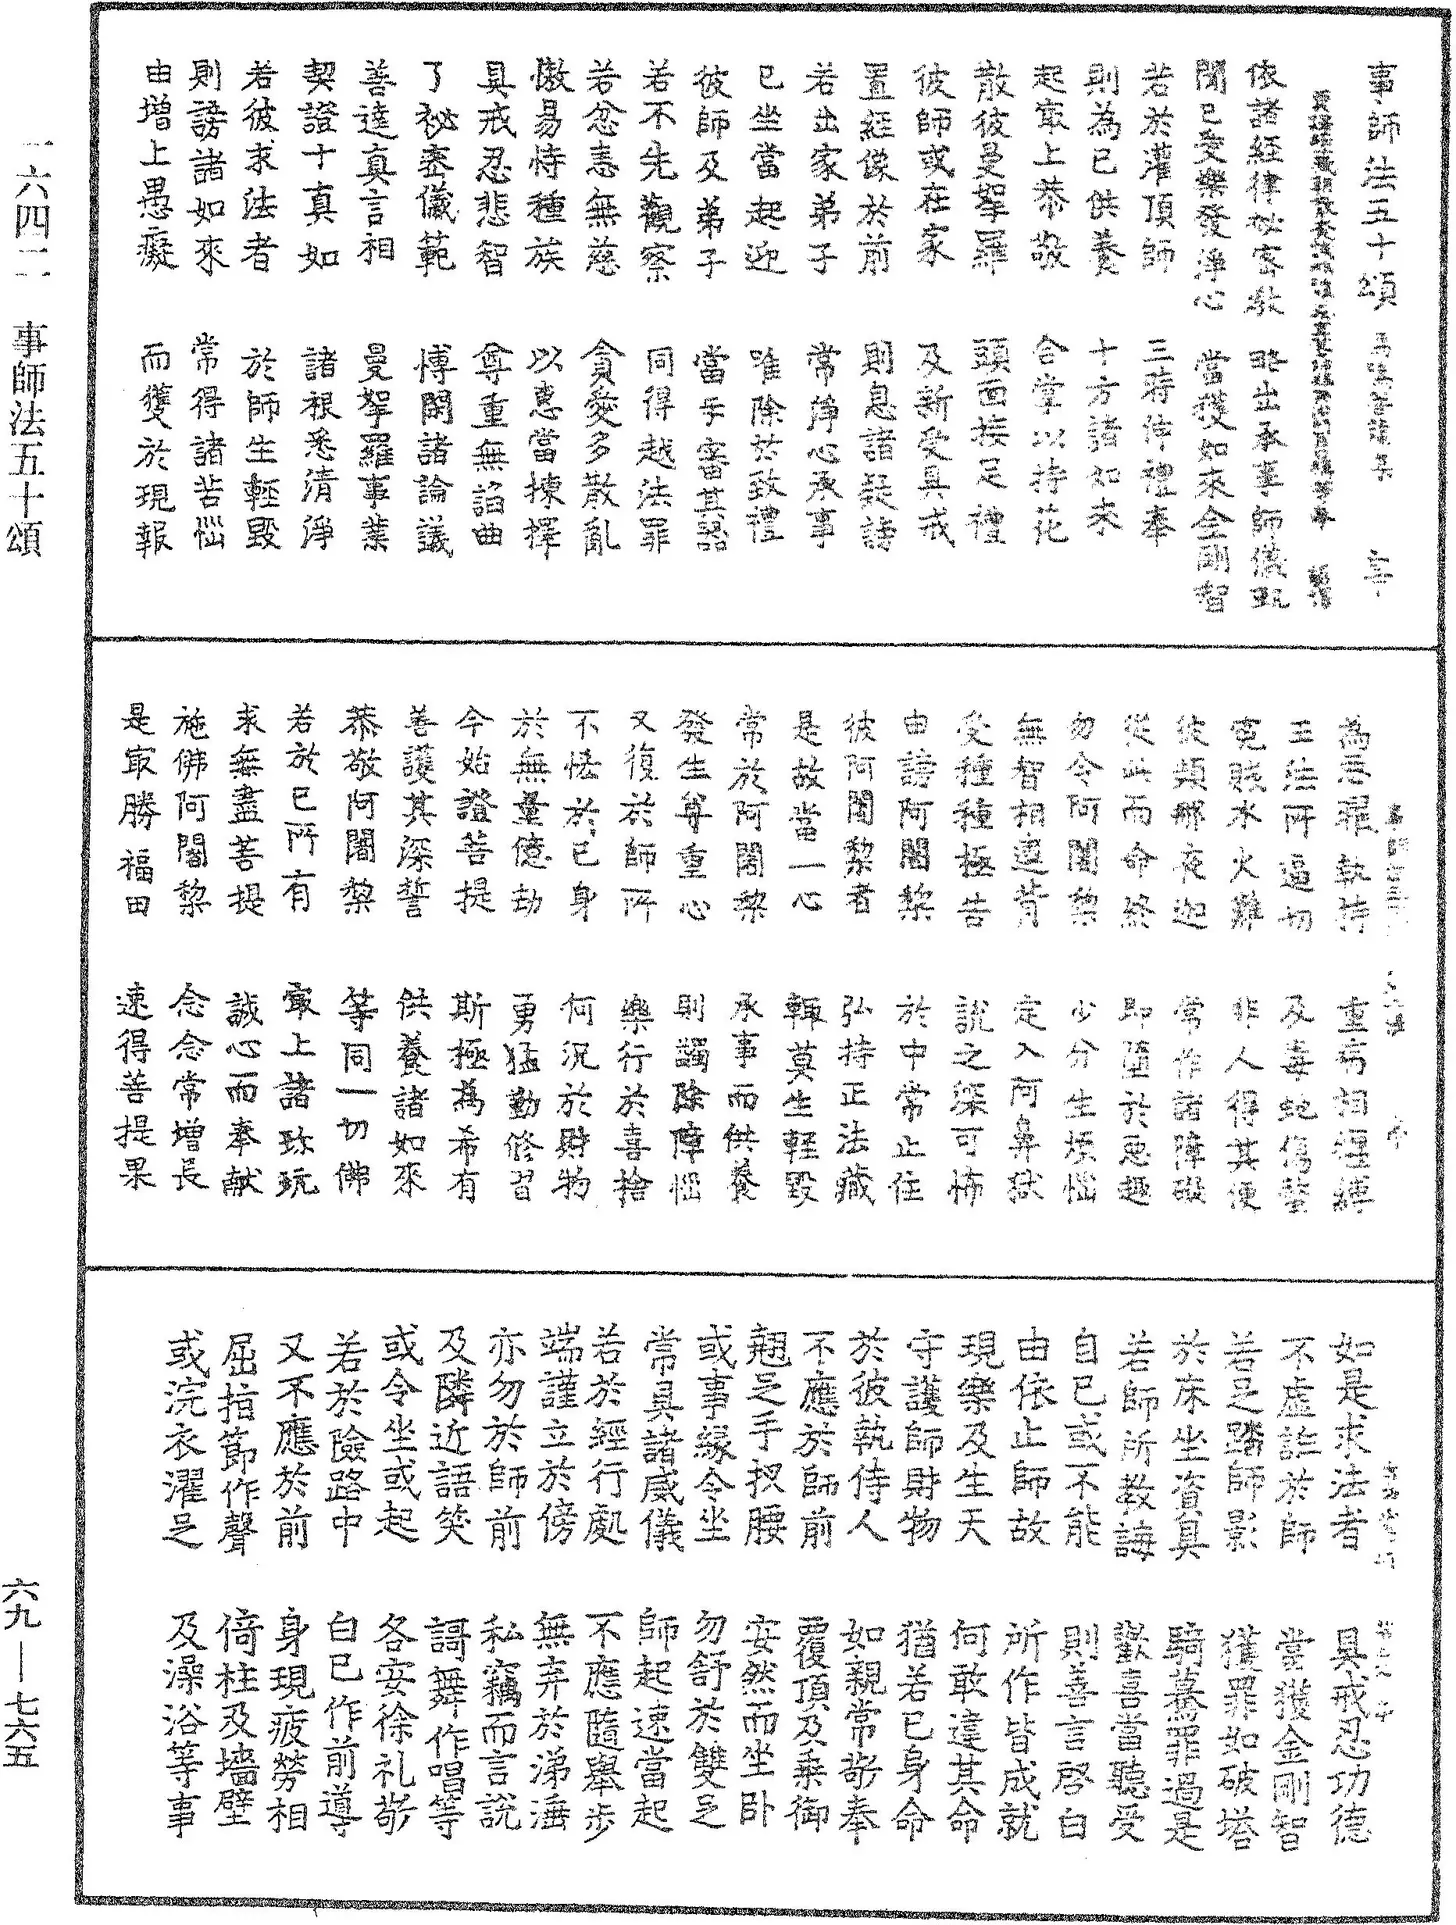 事師法五十頌 馬鳴菩薩集
依諸經律祕密教 略出承事師儀軌
聞已受樂發淨心 當獲如來金剛智
若於灌頂師 三時伸禮奉
則為已供養 十方諸如來
起㝡上恭敬 合掌以持花
散彼曼拏羅 頭面接足禮
彼師或在家 及新受具戒
置經像於前 則息諸疑謗
若出家弟子 常淨心承事
已坐當起迎 唯除於致禮
彼師及弟子 當互審其器
若不先觀察 同得越法罪
若忿恚無慈 貪愛多散亂
慠易恃種族 以惠當揀擇
具戒忍悲智 尊重無諂曲
了祕密儀範 博閑諸論議
善達真言相 曼拏羅事業
契證十真如 諸根悉清淨
若彼求法者 於師生輕毀
則謗諸如來 常得諸苦惱
由增上愚癡 而獲於現報
為惡曜執持 重病相纏縛
王法所逼切 及毒蛇傷螫
冤賊水火難 非人得其便
彼頻那夜迦 常作諸障礙
從此而命終 即墮於惡趣
勿令阿闍黎 少分生煩惱
無智相違背 定入阿鼻獄
受種種極苦 說之深可怖
由謗阿闍黎 於中常止住
彼阿闍黎者 弘持正法藏
是故當一心 輙莫生輕毀
常於阿闍黎 承事而供養
發生尊重心 則蠲除障惱
又復於師所 樂行於喜捨
不悋於己身 何況於財物
於無量億劫 勇猛勤修習
今始證菩提 斯極為希有
善護其深誓 供養諸如來
恭敬阿闍黎 等同一切佛
若於己所有 㝡上諸珍玩
求無盡菩提 誠心而奉献
施佛阿闍黎 念念常增長
是㝡勝福田 速得菩提果
如是求法者 具戒忍功德
不虛詐於師 當獲金剛智
若足踏師影 獲罪如破塔
於床坐資具 騎驀罪過是
若師所教誨 歡喜當聽受
自己或不能 則善言啓白
由依止師故 所作皆成就
現樂及生天 何敢違其命
守護師財物 猶若己身命
於彼執侍人 如親常敬奉
不應於師前 覆頂及乘御
翹足手扠腰 安然而坐卧
或事緣令坐 勿舒於雙足
常具諸威儀 師起速當起
若於經行處 不應隨舉步
端謹立於傍 無弃於涕洟
亦勿於師前 私竊而言說
及隣近語笑 謌舞作唱等
或令坐或起 各安徐礼敬
若於險路中 白已作前導
又不應於前 身現疲勞相
屈指節作聲 倚柱及墻壁
或浣衣濯足 及澡浴等事
一六四二 事師法五十頌
六九—七六五